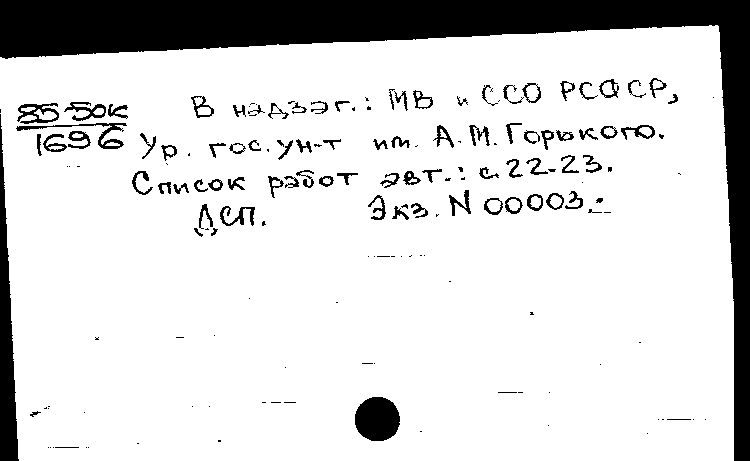 85-50к
1696
В надзаг.: МВ и ССО РСФСР,
Ур. гос. ун-т им. А.М.Горького.
Список работ авт.: с.22-23.
ДСП. Экз. N 00003.